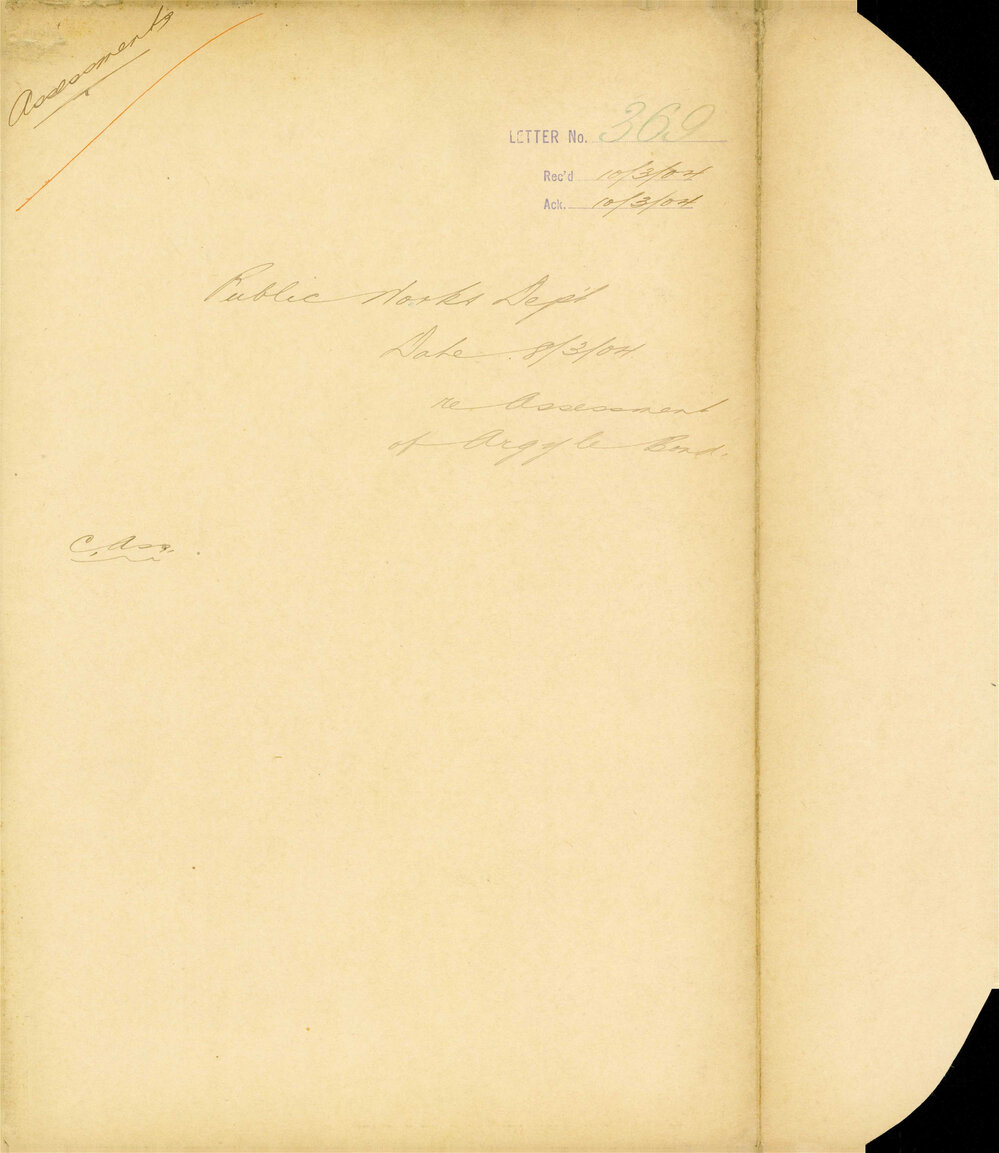 Assessments
LETTER No. 369
Rec'd 10/3/04
Ack. 10/3/04
Public Works Dep't
Date 8/3/04.
re Assessment
of Argyle Bond.
C. Ass.